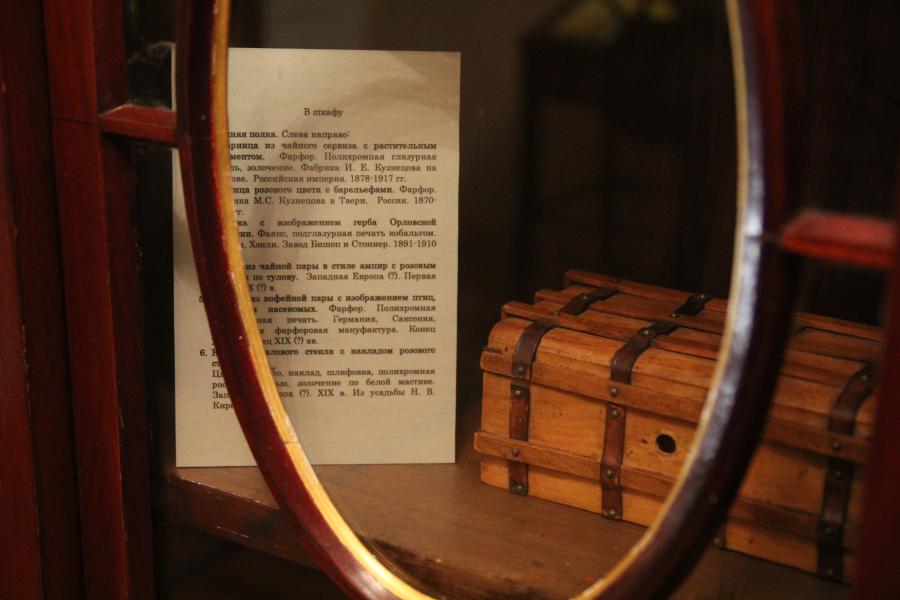 В шкафу
полка. Слева направо:
из чайного сервиза с растительным
Фарфор. Полихромная глазурная
золочение. Фабрика И. Е. Кузнецова на
Российская империя. 1878-1917 гг.
розового цвета с барельефами. Фарфор.
М.С. Кузнецова в Твери. Россия. 1870-
гг.
с изображением герба Орловской
Фаянс, подглазурная печать кобальтом.
Хэнли. Завод Бишоп и Стониер. 1891-1910
из чайной пары в стиле ампир с розовым
по тулову. Западная Европа (?). Первая
(?) в.
из кофейной пары с изображением птиц,
насекомых. Фарфор. Полихромная
печать. Германия, Саксония,
фарфоровая мануфактура. Конец
XIX (?) вв.
6. стекла с накладом розового
наклад, шлифовка, полихромная
золочение по белой мастике.
(?). XIX в. Из усадьбы Н. В.